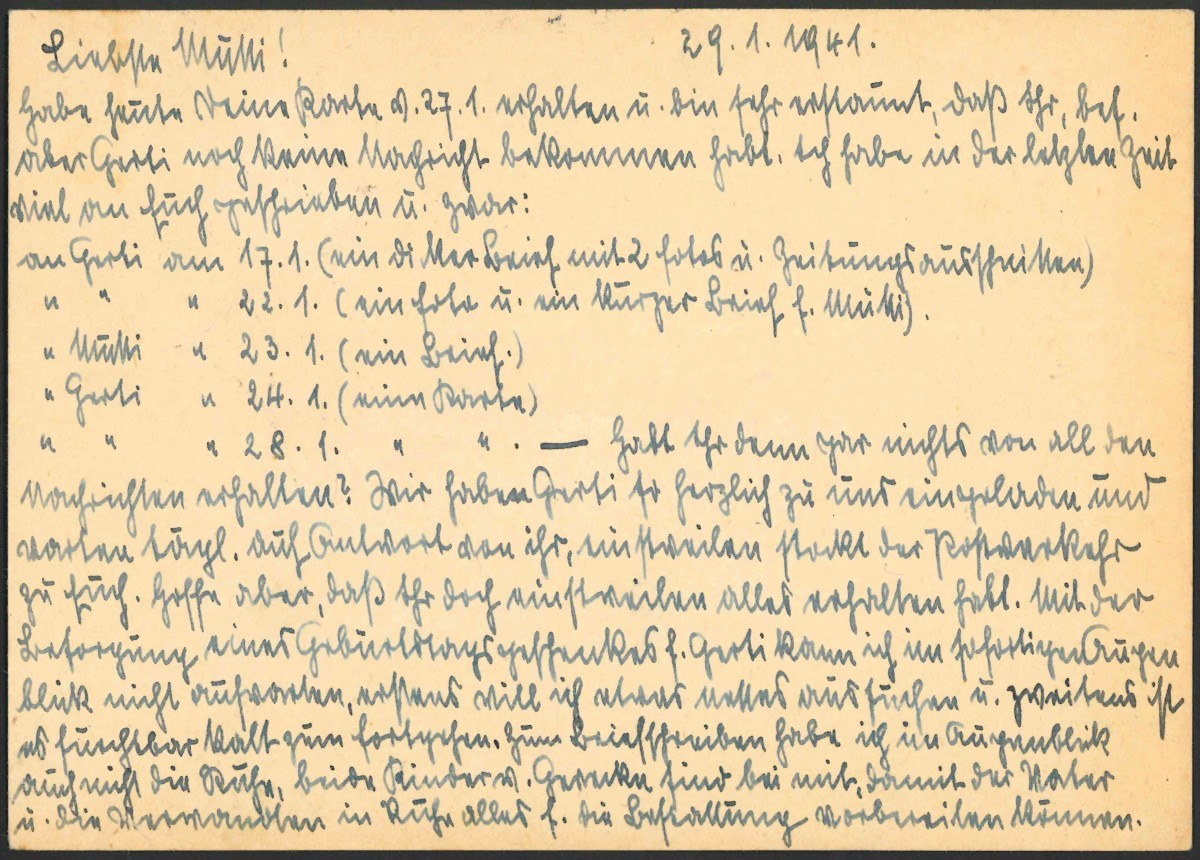 Liebste Mutti! 29. 1. 1941.
Habe heute Deine Karte v. 27. 1. erhalten u. bin sehr erstaunt, daß Ihr, bes.
aber Gerti noch keine Nachricht bekommen habt. Ich habe in der letzten Zeit
viel an Euch geschrieben u. zwar:
an Gerti am 17. 1. (ein dicker Brief mit 2 Fotos u. Zeitungsausschnitten)
" " " 22. 1. (ein Foto u. ein kurzer Brief f. Mutti).
" Mutti " 23. 1. (ein Brief.)
" Gerti " 24. 1. (eine Karte)
" " " 28. 1. " " . — Habt Ihr denn gar nichts von all den
Nachrichten erhalten? Wir haben Gerti so herzlich zu uns eingeladen und
warten tägl. auf Antwort von ihr, einstweilen stockt der Postverkehr
zu Euch. Hoffe aber, daß Ihr doch einstweilen alles erhalten habt. Mit der
Besorgung eines Geburtstagsgeschenkes f. Gerti kann ich im sofortigen Augen
blick nicht aufwarten, erstens will ich etwas nettes aussuchen u. zweitens ist
es furchtbar kalt zum Fortgehen. Zum Briefschreiben habe ich im Augenblick
auch nicht die Ruhe, beide Kinder v. Gerecke sind bei mir, damit der Vater
u. die Verwandten in Ruhe alles f. die Bestattung vorbereiten können.